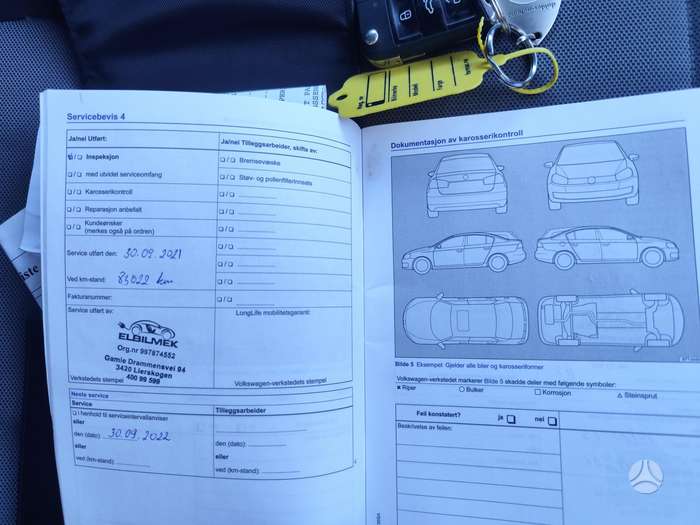 Servicebevis 4
Ja/nei Utført:
Ja/nei Tilleggsarbeider, skifte av:
Inspeksjon
Bremsevæske
med utvidet serviceomfang
Støv- og pollenfilterinnsats
Karosserikontroll
Reparasjon anbefalt
Kundeønsker
(merkes også på ordren)
Service utført den: 30.09.2021
Ved km-stand: 83022 km
Fakturanummer:
Service utført av:
LongLife mobilitetsgaranti:
ELBILMEK
Org.nr 997874552
Gamle Drammensvei 94
3420 Lierskogen
400 99 599
Verkstedets stempel
Volkswagen-verkstedets stempel
Neste service
Service
Tilleggsarbeider
i henhold til serviceintervallanviser
eller
den (dato): 30.09.2022
den (dato):
eller
eller
ved (km-stand):
ved (km-stand):
Dokumentasjon av karosserikontroll
Bilde 5 Eksempel: Gjelder alle biler og karosseriformer
Volkswagen-verkstedet markerer Bilde 5 skadde deler med følgende symboler:
× Riper
○ Bulker
□ Korrosjon
△ Steinsprut
Feil konstatert?
ja
nei
Beskrivelse av feilen: